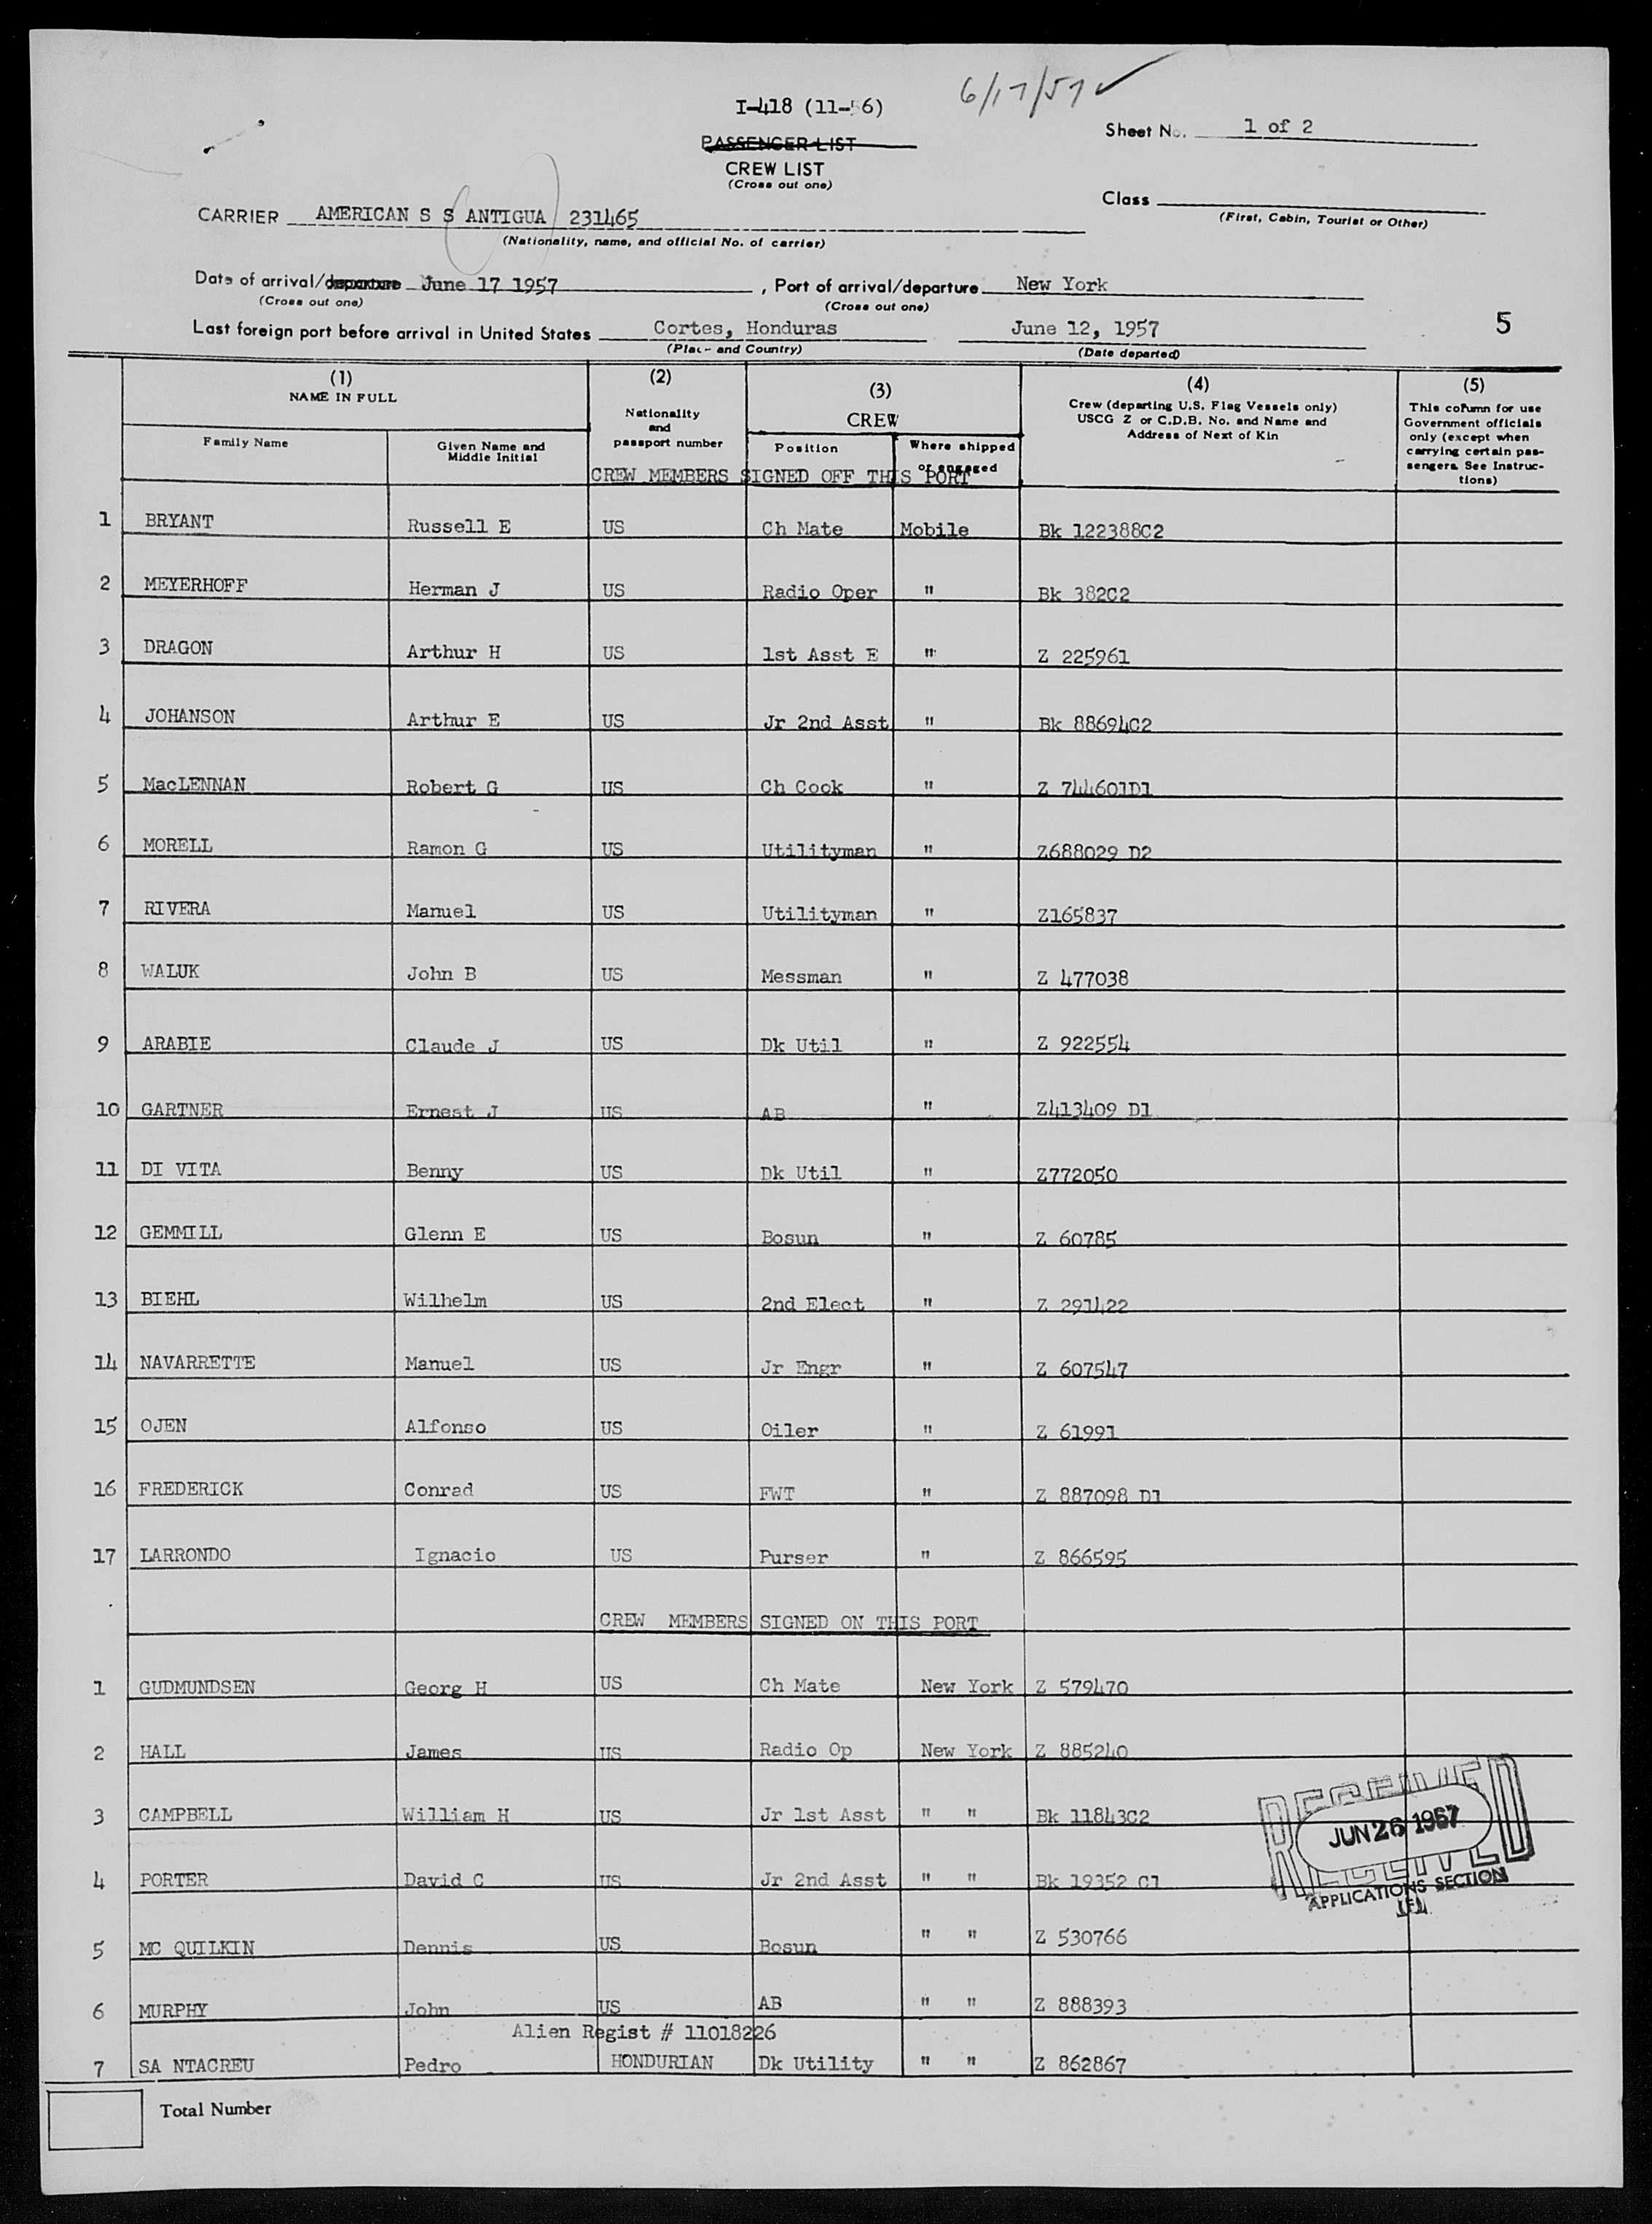 6/17/57 ✓
I-418 (11-56)
Sheet No. 1 of 2
PASSENGER LIST
CREW LIST
(Cross out one)
Class
(First, Cabin, Tourist or Other)
CARRIER AMERICAN S S ANTIGUA 231465
(Nationality, name, and official No. of carrier)
Date of arrival/departure June 17 1957, Port of arrival/departure New York
(Cross out one) (Cross out one)
Last foreign port before arrival in United States Cortes, Honduras June 12, 1957 5
(Place and Country) (Date departed)
(1) (2) (3) (4) (5)
NAME IN FULL Nationality and passport number CREW Crew (departing U.S. Flag Vessels only) USCG Z or C.D.B. No. and Name and Address of Next of Kin This column for use Government officials only (except when carrying certain passengers. See Instructions)
Family Name Given Name and Middle Initial Position Where shipped or engaged
CREW MEMBERS SIGNED OFF THIS PORT
1 BRYANT Russell E US Ch Mate Mobile Bk 122388C2
2 MEYERHOFF Herman J US Radio Oper " Bk 382C2
3 DRAGON Arthur H US 1st Asst E " Z 225961
4 JOHANSON Arthur E US Jr 2nd Asst " Bk 88694C2
5 MacLENNAN Robert G US Ch Cook " Z 744601D1
6 MORELL Ramon G US Utilityman " Z688029 D2
7 RIVERA Manuel US Utilityman " Z165837
8 WALUK John B US Messman " Z 477038
9 ARABIE Claude J US Dk Util " Z 922554
10 GARTNER Ernest J US AB " Z413409 D1
11 DI VITA Benny US Dk Util " Z772050
12 GEMMILL Glenn E US Bosun " Z 60785
13 BIEHL Wilhelm US 2nd Elect " Z 291422
14 NAVARRETTE Manuel US Jr Engr " Z 607547
15 OJEN Alfonso US Oiler " Z 61991
16 FREDERICK Conrad US FWT " Z 887098 D1
17 LARRONDO Ignacio US Purser " Z 866595
CREW MEMBERS SIGNED ON THIS PORT
1 GUDMUNDSEN Georg H US Ch Mate New York Z 579470
2 HALL James US Radio Op New York Z 885240
3 CAMPBELL William H US Jr 1st Asst " " Bk 11843C2
4 PORTER David C US Jr 2nd Asst " " Bk 19352 C1
5 MC QUILKIN Dennis US Bosun " " Z 530766
6 MURPHY John US AB " " Z 888393
Alien Regist # 11018226
7 SA NTACREU Pedro HONDURIAN Dk Utility " " Z 862867
RECEIVED
JUN 26 1957
RECEIVED
APPLICATIONS SECTION
Total Number